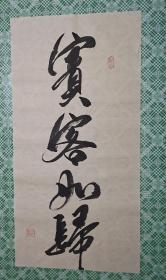 賓客如歸